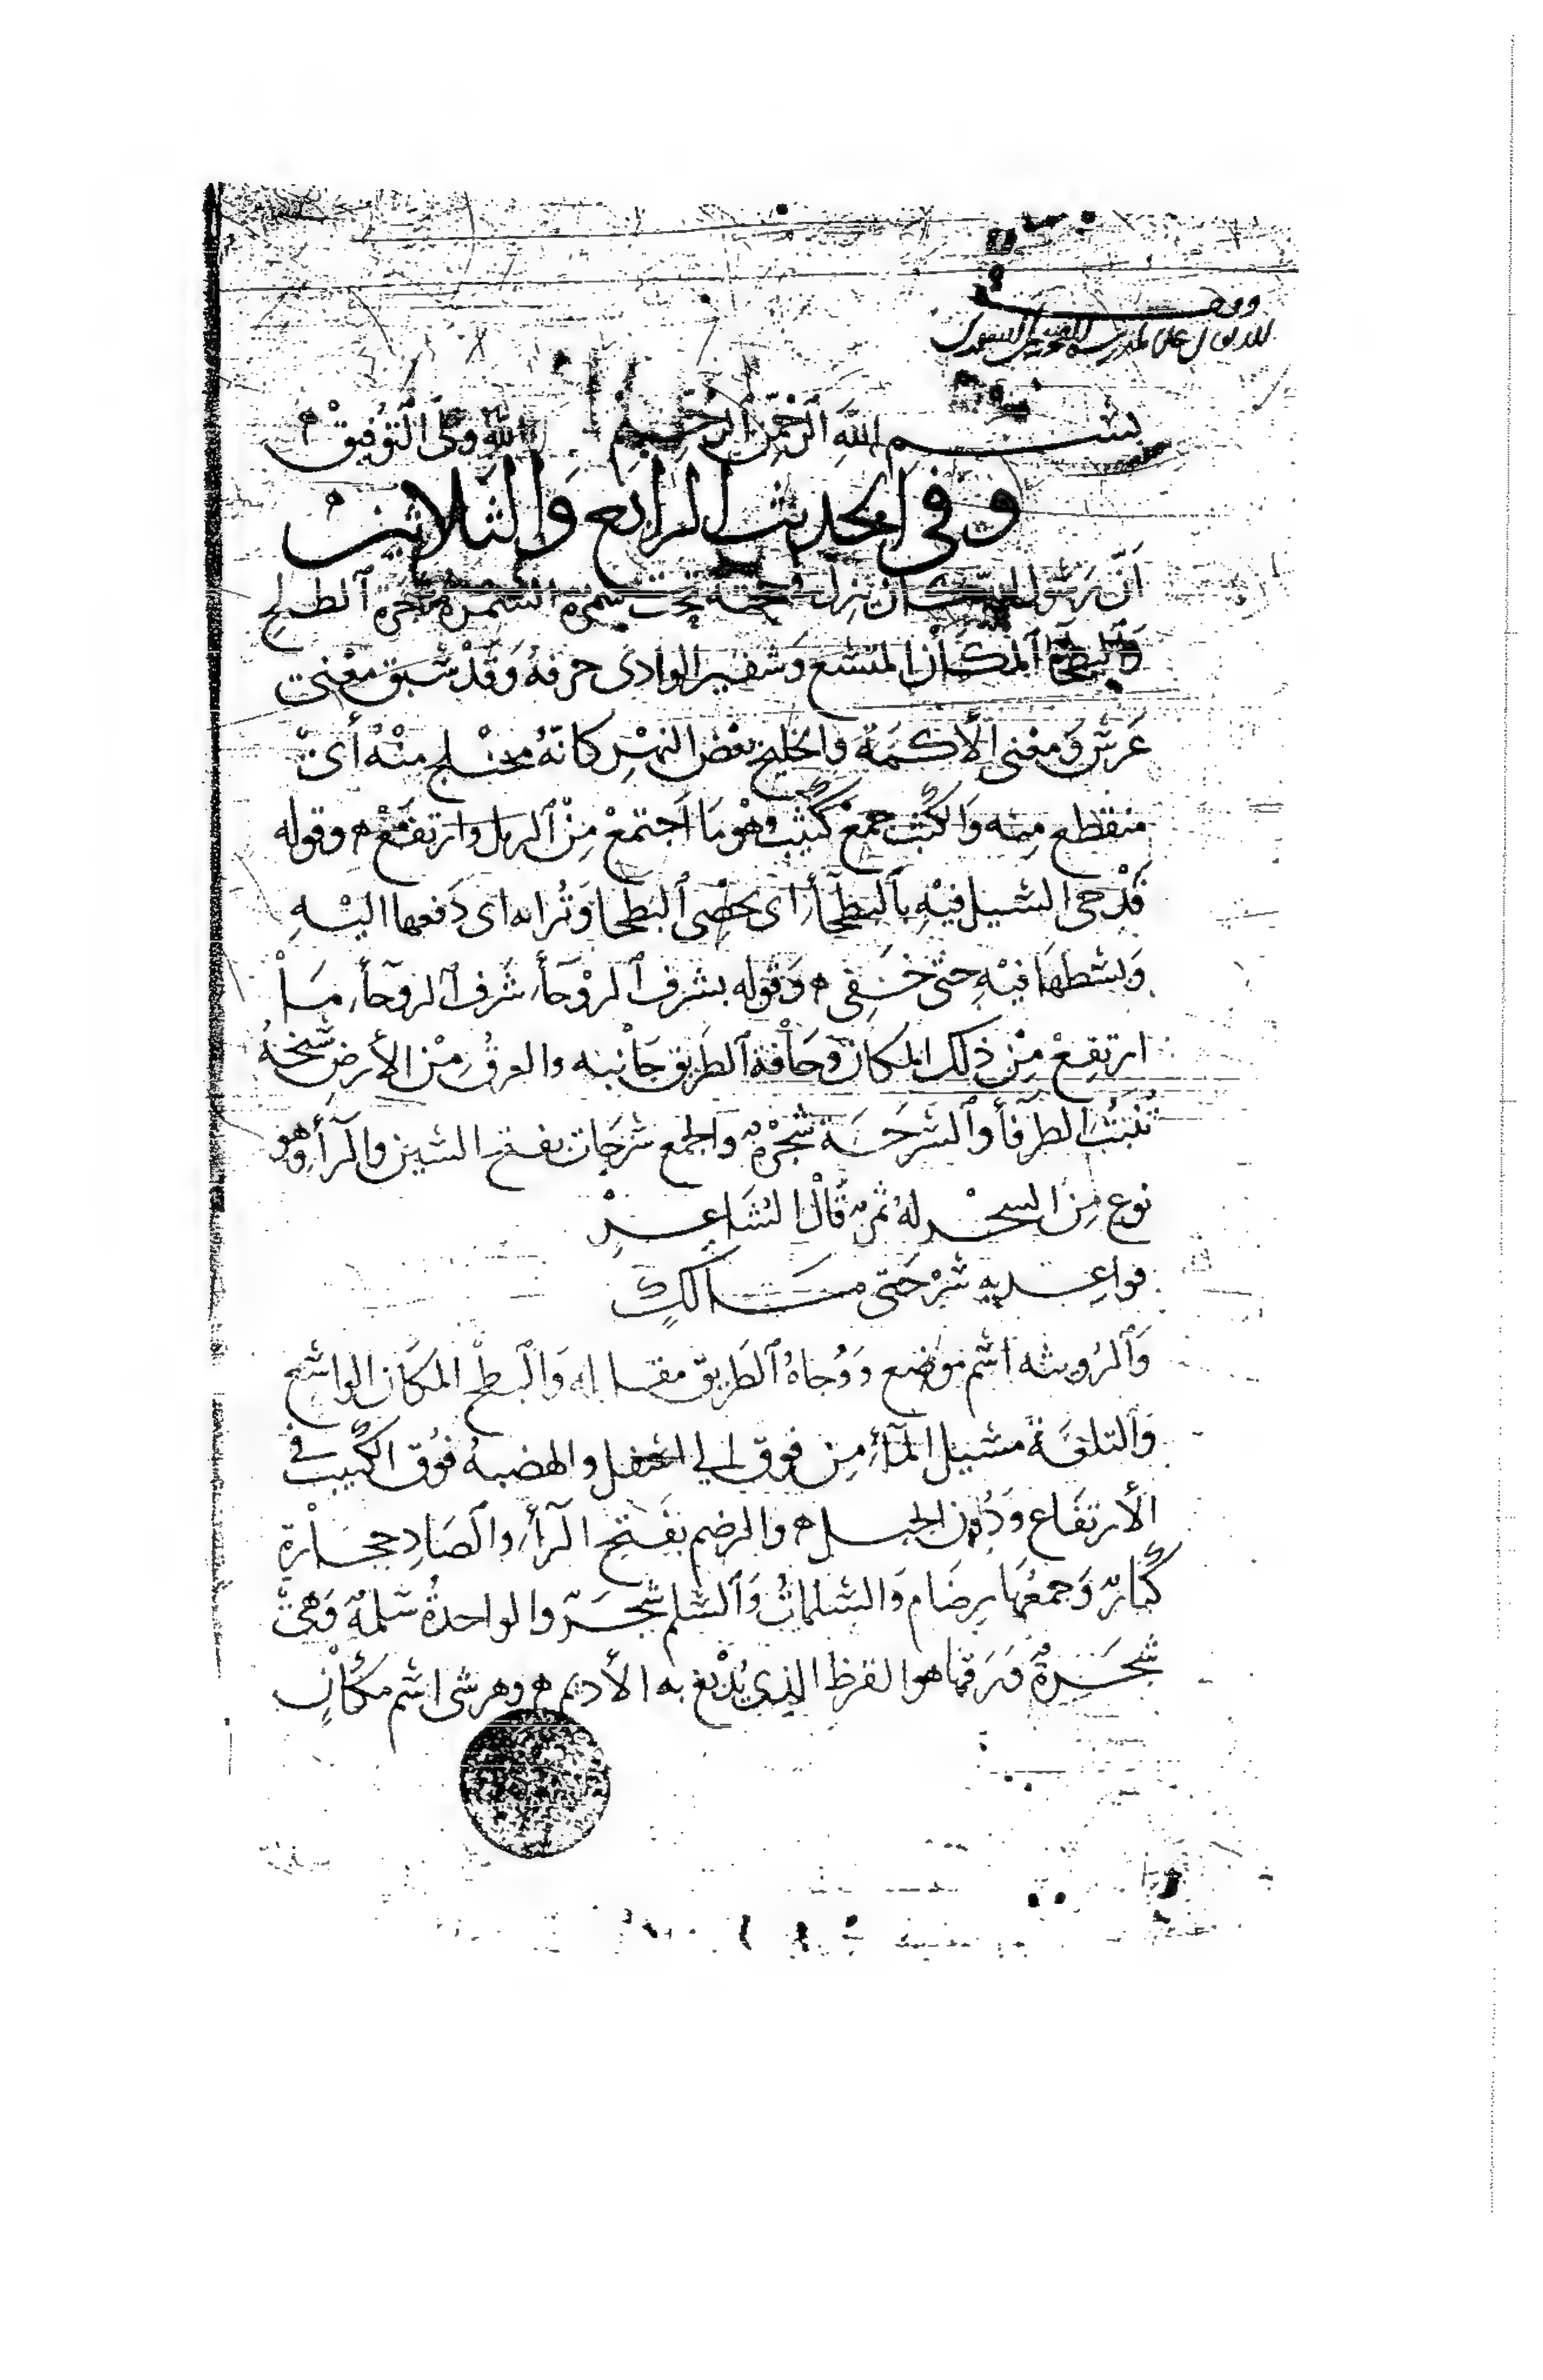 وقف
لله تعالى على المدرسة
بسم الله الرحمن الرحيم الله ولي التوفيق
وفي الحديث الرابع والثلاثين
أن رسول الله كان ينزل تحت سمرة السمرة شجرة الطلح
والبطحاء المكان المتسع وشفير الوادي حرفه وقد سبق معنى
عرس ومعنى الأكمة والخليج بعض النهر كأنه مختلج منه أي
منقطع منه والكثب جمع كثيب وهو ما اجتمع من الرمل وارتفع وقوله
فدحى السيل فيه بالبطحاء أي بحصى البطحا وترابه اي دفعها اليه
وبسطها فيه حتى خفي وقوله بشرف الروحاء شرف الروحاء ما
ارتفع من ذلك المكان وحافة الطريق جانبه والعرق من الأرض سبخة
تنبت الطرفاء والسرحة شجرة والجمع سرحات بفتح السين والراء وهو
نوع من الشجر له ثمر قال الشاعر
فواعديه سرحتي مالك
والرويثه اسم موضع ووجاه الطريق مقابله والبطح المكان الواسع
والتلعة مسيل الماء من فوق إلى اسفل والهضبة فوق الكثيب في
الأرتفاع ودون الجبل والرضم بفتح الراء والضاد حجارة
كبار وجمعها رضام والسلمات والسلم شجر والواحدة سلمة وهي
شجرة ورقها هو القرظ الذي يدبغ به الأديم وهرشى اسم مكان